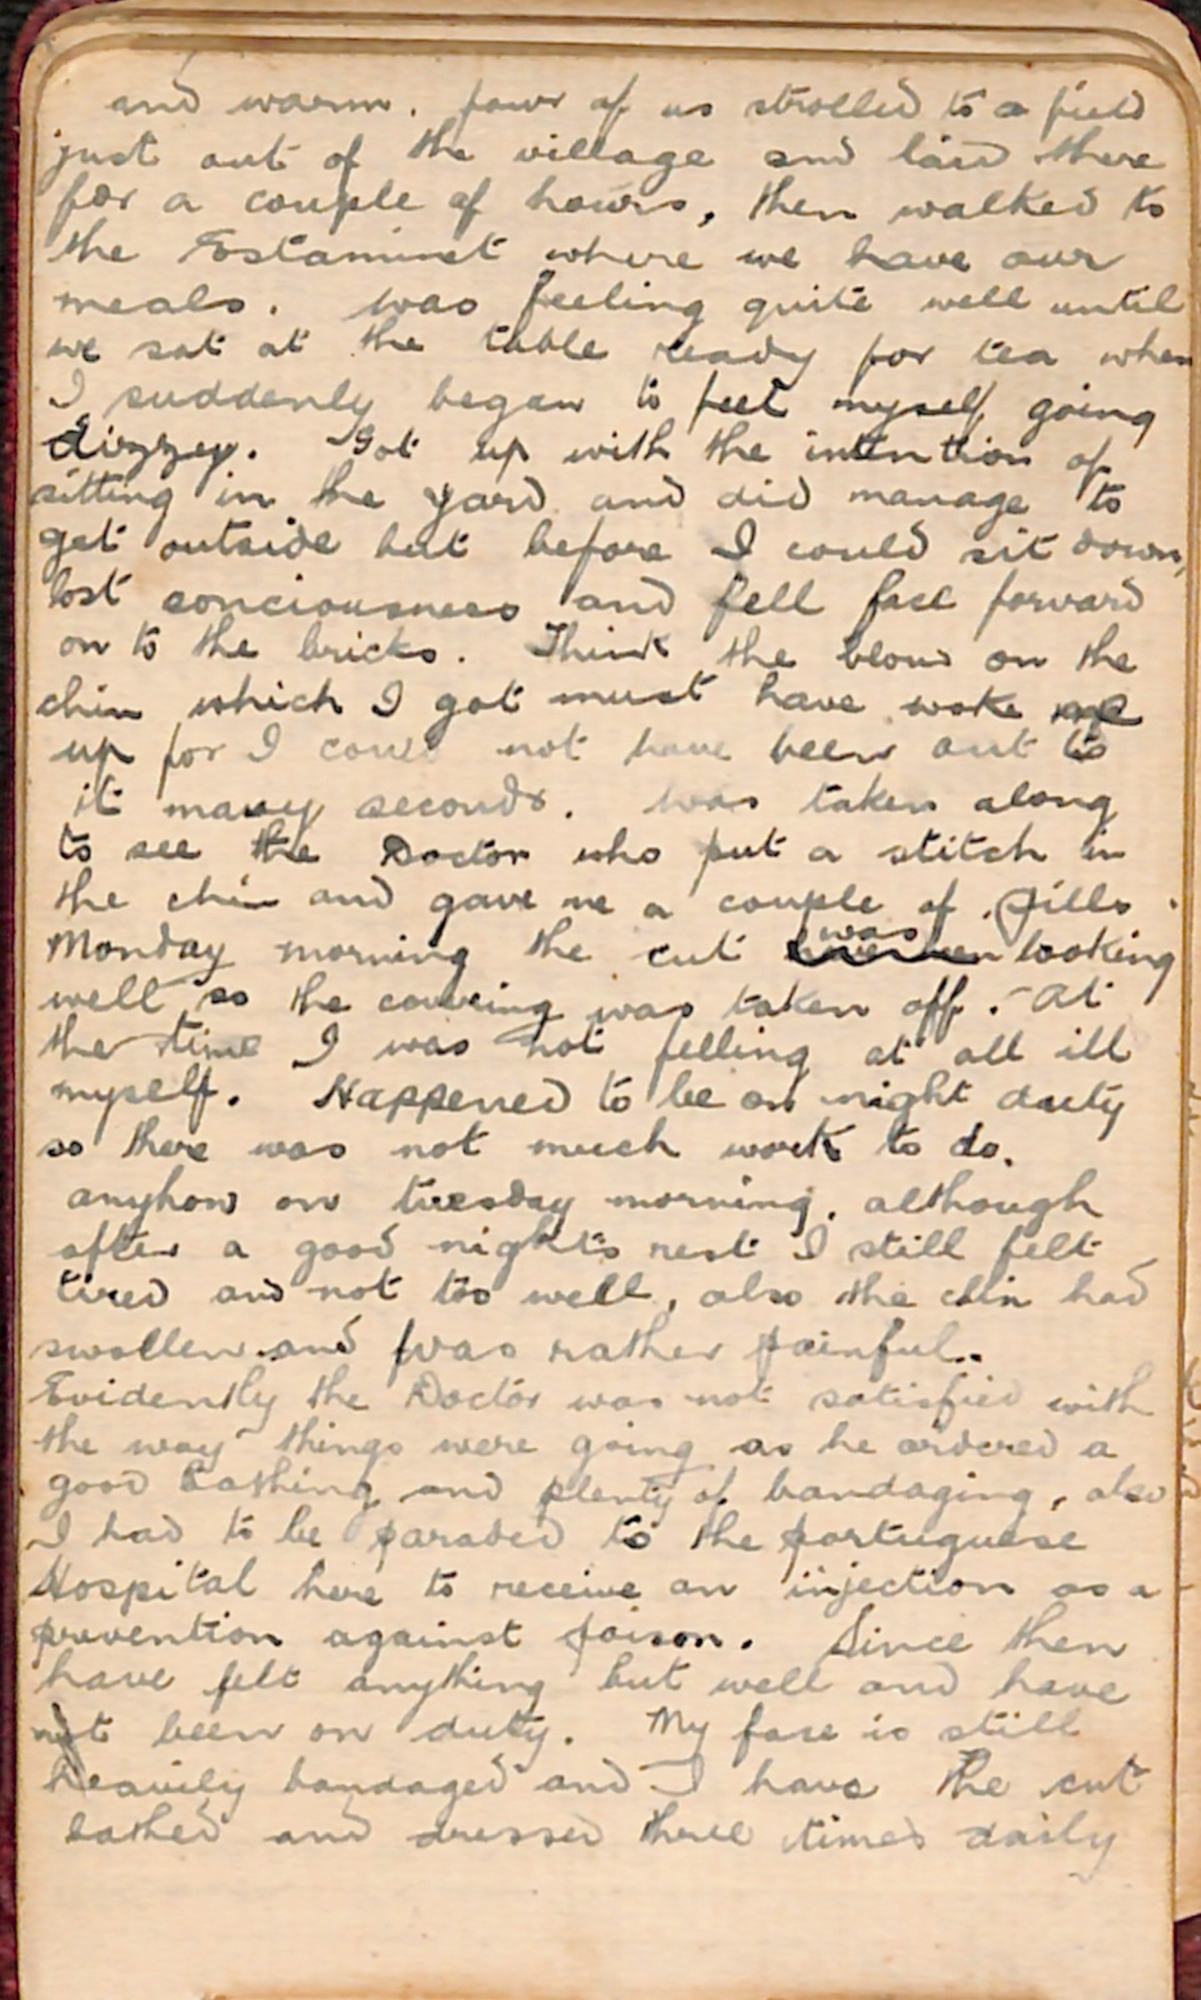 and warm. four of us strolled to a field
just out of the village and laid there
for a couple of hours, then walked to
the Estaminet where we have our
meals. was feeling quite well until
we sat at the table ready for tea when
I suddenly began to feel myself going
dizzey. Got up with the intention of
sitting in the yard and did manage to
get outside but before I could sit down,
lost conciousness and fell face forward
on to the bricks. Think the blow on the
chin which I got must have woke me
up for I could not have been out to
it many seconds. Was taken along
to see the Doctor who put a stitch in
the chin and gave me a couple of pills.
Monday morning the cut was looking
well so the covering was taken off. At
the time I was not felling at all ill
myself. Happened to be on night duty
so there was not much work to do.
anyhow on tuesday morning, although
after a good night's rest I still felt
tired and not too well, also the chin had
swollen and was rather painful.
Evidently the Doctor was not satisfied with
the way things were going as he ordered a
good bathing and plenty of bandaging, also
I had to be paraded to the portuguese
Hospital here to receive an injection as a
prevention against poison. Since then
have felt anything but well and have
not been on duty. My face is still
heavily bandaged and I have the cut
bathed and dressed three times daily